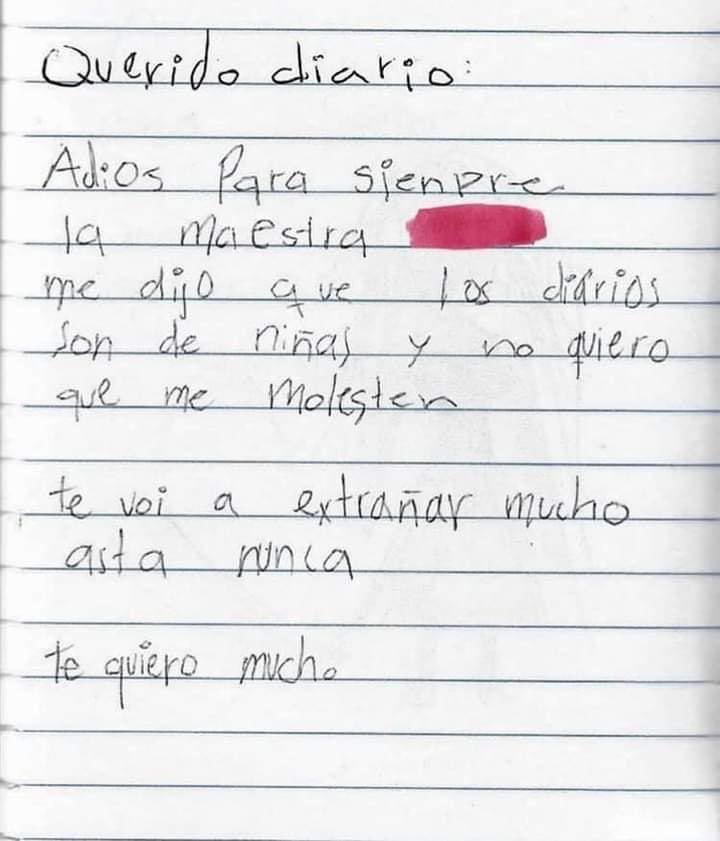 Querido diario:
Adios Para sienpre
la maestra
me dijo que los diarios
son de niñas y no quiero
que me molesten
te voi a extrañar mucho
asta nunca
te quiero mucho